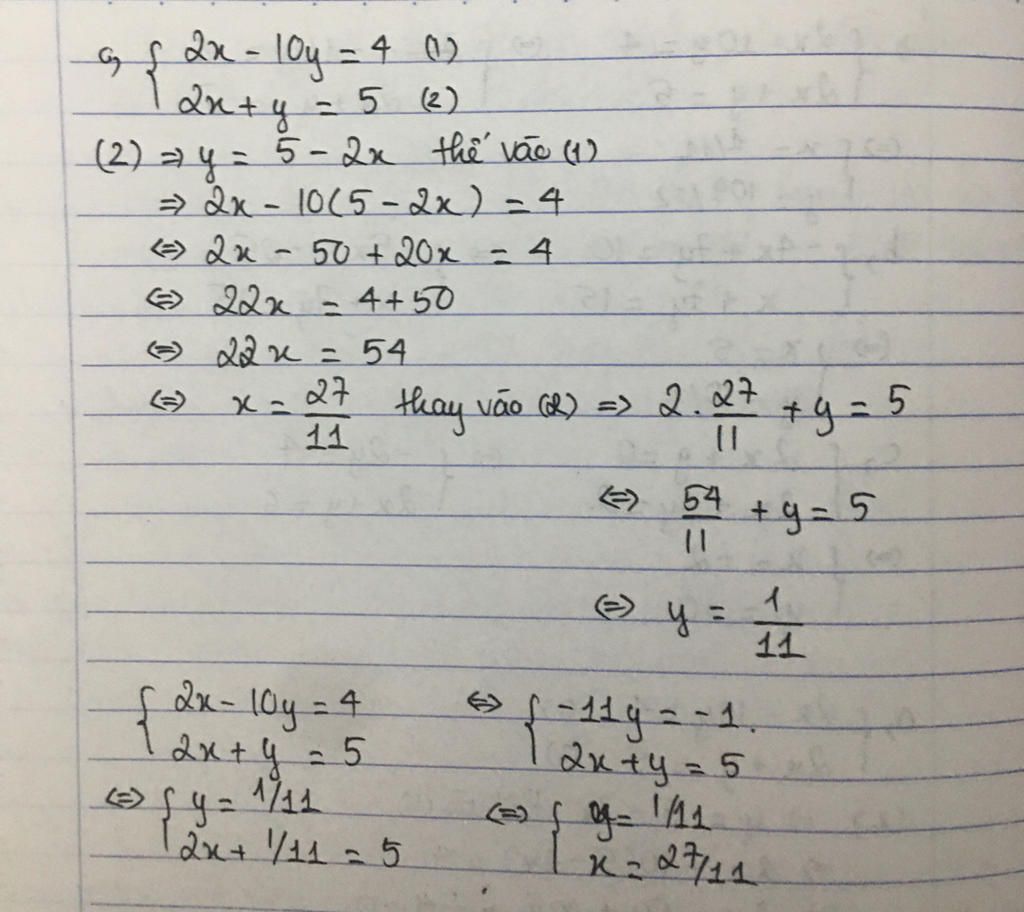 a, { 2x - 10y = 4 (1)
2x + y = 5 (2)
(2) ⇒ y = 5 - 2x thế vào (1)
⇒ 2x - 10(5 - 2x) = 4
⇔ 2x - 50 + 20x = 4
⇔ 22x = 4 + 50
⇔ 22x = 54
⇔ x = 27/11 thay vào (2) ⇒ 2 . 27/11 + y = 5
⇔ 54/11 + y = 5
⇔ y = 1/11
{ 2x - 10y = 4 ⇔ { -11y = -1.
2x + y = 5 2x + y = 5
⇔ { y = 1/11 ⇔ { y = 1/11
2x + 1/11 = 5 x = 27/11